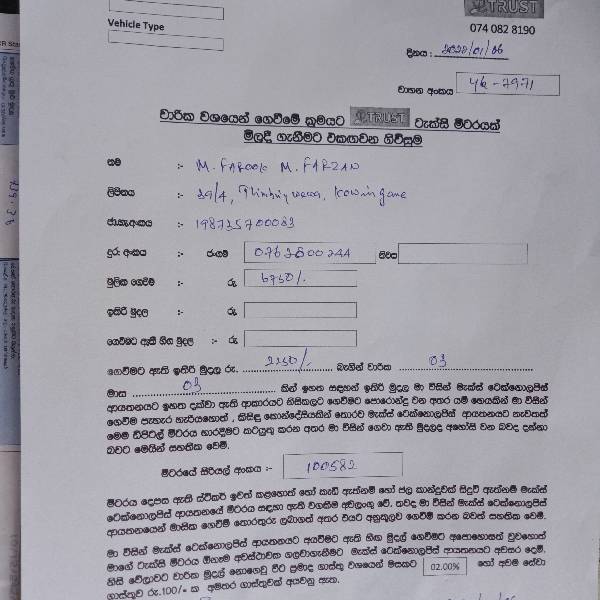 Vehicle Type
TRUST
074 082 8190
දිනය : 2022/01/06
වාහන අංකය YR-7971
වාරික වශයෙන් ගෙවීමේ ක්‍රමයට TRUST ටැක්සි මීටරයක්
මිලදී ගැනීමට එකඟවන ගිවිසුම
නම :- M. FAROOK M. FARZAN
ලිපිනය :- 39/4,
ජා.හැ.අංකය :- 198735700083
දුර. අංකය :- ජංගම 0762800244 නිවස
මූලික ගෙවීම :- රු 6750/-
ඉතිරි මුදල :- රු
ගෙවීමට ඇති හිඟ මුදල :- රු
ගෙවීමට ඇති ඉතිරි මුදල රු. 2250/- බැගින් වාරික 03
මාස 03 කින් ඉහත සඳහන් ඉතිරි මුදල මා විසින් මැක්ස් ටෙක්නොලජිස්
ආයතනයට ඉහත දක්වා ඇති ආකාරයට නිසිකලට ගෙවීමට පොරොන්දු වන අතර යම් හෙයකින් මා විසින්
ගෙවීම පැහැර හැරියහොත් , කිසිඳු කොන්දේසියකින් තොරව මැක්ස් ටෙක්නොලජිස් ආයතනයට නැවතත්
මෙම ඩිජිටල් මීටරය භාරදීමට කටයුතු කරන අතර මා විසින් ගෙවා ඇති මුදලද අහෝසි වන බවද දන්නා
බවට මෙයින් සහතික වෙමි.
මීටරයේ සීරියල් අංකය :- 100582
මීටරය දෙපස ඇති ස්ටිකර් ඉවත් කළහොත් හෝ කැඩී ඇත්නම් හෝ ජල කාන්දුවක් සිදුවී ඇත්නම් මැක්ස්
ටෙක්නොලජිස් ආයතනයේ මීටරය සඳහා ඇති වගකීම අවලංගු වේ. තවද මා විසින් මැක්ස් ටෙක්නොලජිස්
ආයතනයෙන් මාසික ගෙවීම් තොරතුරු ලබාගත් අතර එයට අනුකූලව ගෙවීම් කරන බවත් සහතික වෙමි.
මා විසින් මැක්ස් ටෙක්නොලජිස් ආයතනයට අයවීමට ඇති හිඟ මුදල ගෙවීමට අපොහොසත් වුවහොත්
මාගේ ටැක්සි මීටරය ඕනෑම අවස්ථාවක ගලවාගැනීමට මැක්ස් ටෙක්නොලජිස් ආයතනයට අවසර දෙමි.
නිසි වේලාවට වාරික මුදල් නොගෙවූ විට ප්‍රමාද ගාස්තු වශයෙන් මසකට 02.00% හෝ අවම සේවා
ගාස්තුව රු.100/= ක අමතර ගාස්තුවක් අයවනු ඇත.